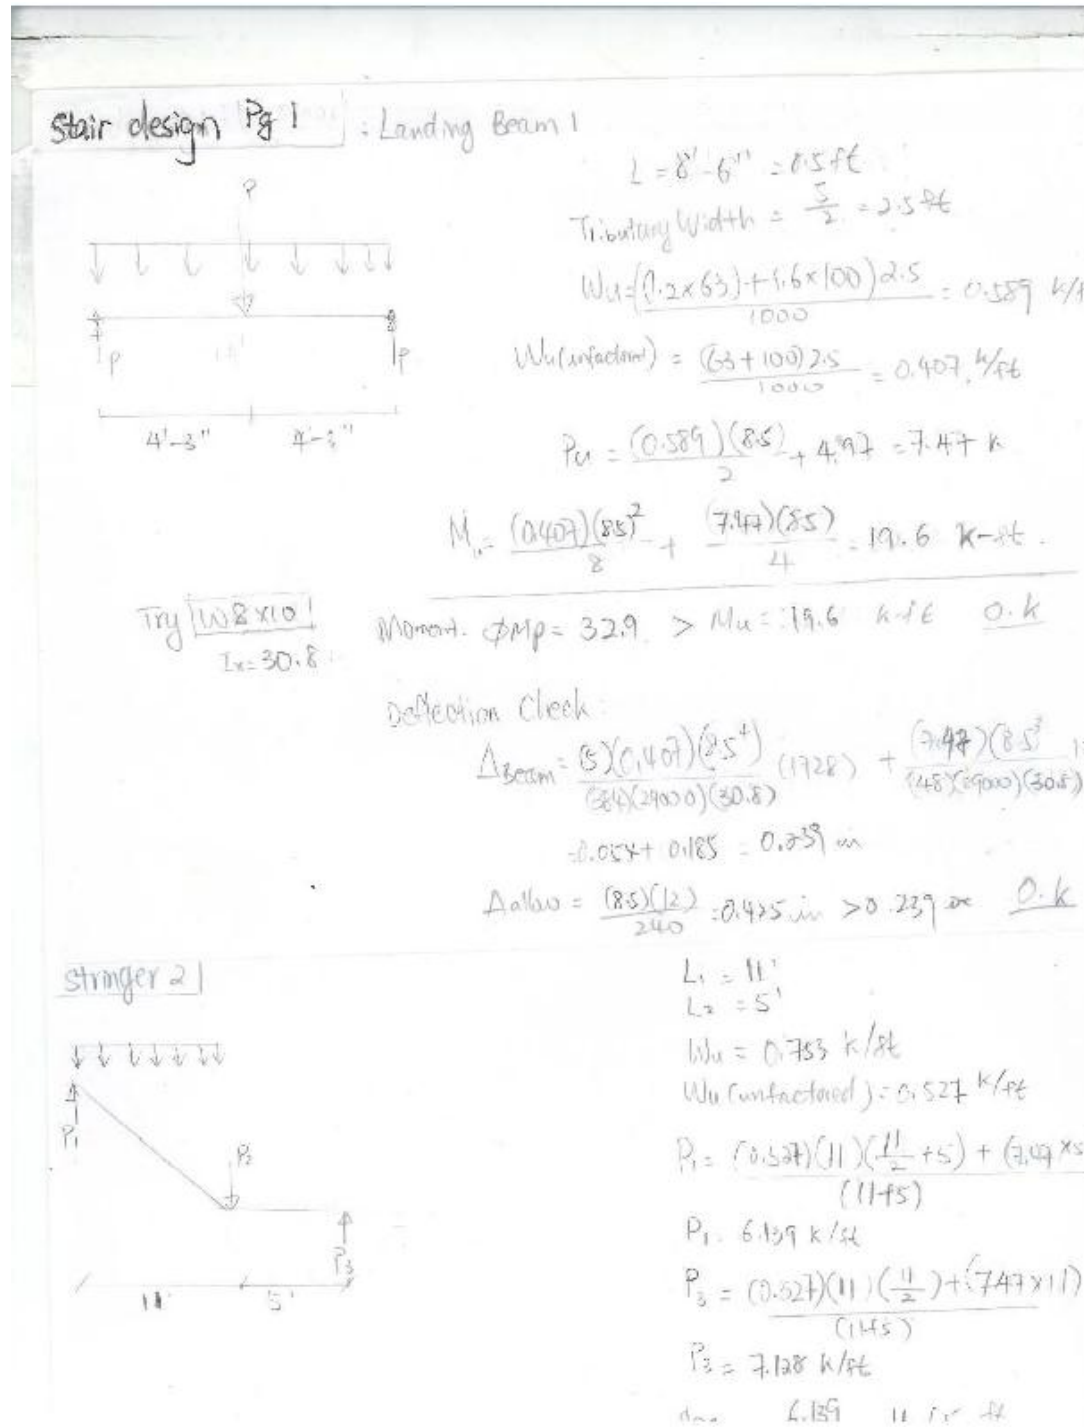 Stair design Pg 1 : Landing Beam 1
L = 8'-6" = 8.5 ft
Tributary Width = 5/2 = 2.5 ft
P
Wu = ((1.2x63)+1.6x100)2.5/1000 = 0.589 k/f
Wu(unfactored) = (63+100)2.5/1000 = 0.407 k/ft
P P
4'-3" 4'-3"
Pu = (0.589)(8.5)/2 + 4.97 = 7.47 k
Mu = (0.407)(8.5)²/8 + (7.47)(8.5)/4 = 19.6 k-ft.
Try W8x10
Ix = 30.8
Moment. φMp = 32.9 > Mu = 19.6 k-ft O.K
Deflection Check:
ΔBeam = (5)(0.407)(8.5⁴)/(384)(29000)(30.8) (1728) + (7.47)(8.5³)/(48)(29000)(30.8)
= 0.054 + 0.185 = 0.239 in
Δallow = (8.5)(12)/240 = 0.425 in > 0.239 O.K
Stringer 2
L₁ = 11'
L₂ = 5'
Wu = 0.753 k/ft
Wu (unfactored) = 0.527 k/ft
P₁
P₂
P₃
11' 5'
P₁ = (0.527)(11)(11/2 + 5) + (7.47 x 5/(11+5)
P₁ = 6.139 k/ft
P₃ = (0.527)(11)(11/2) + (7.47 x 11)/(11+5)
P₃ = 7.128 k/ft
6.139